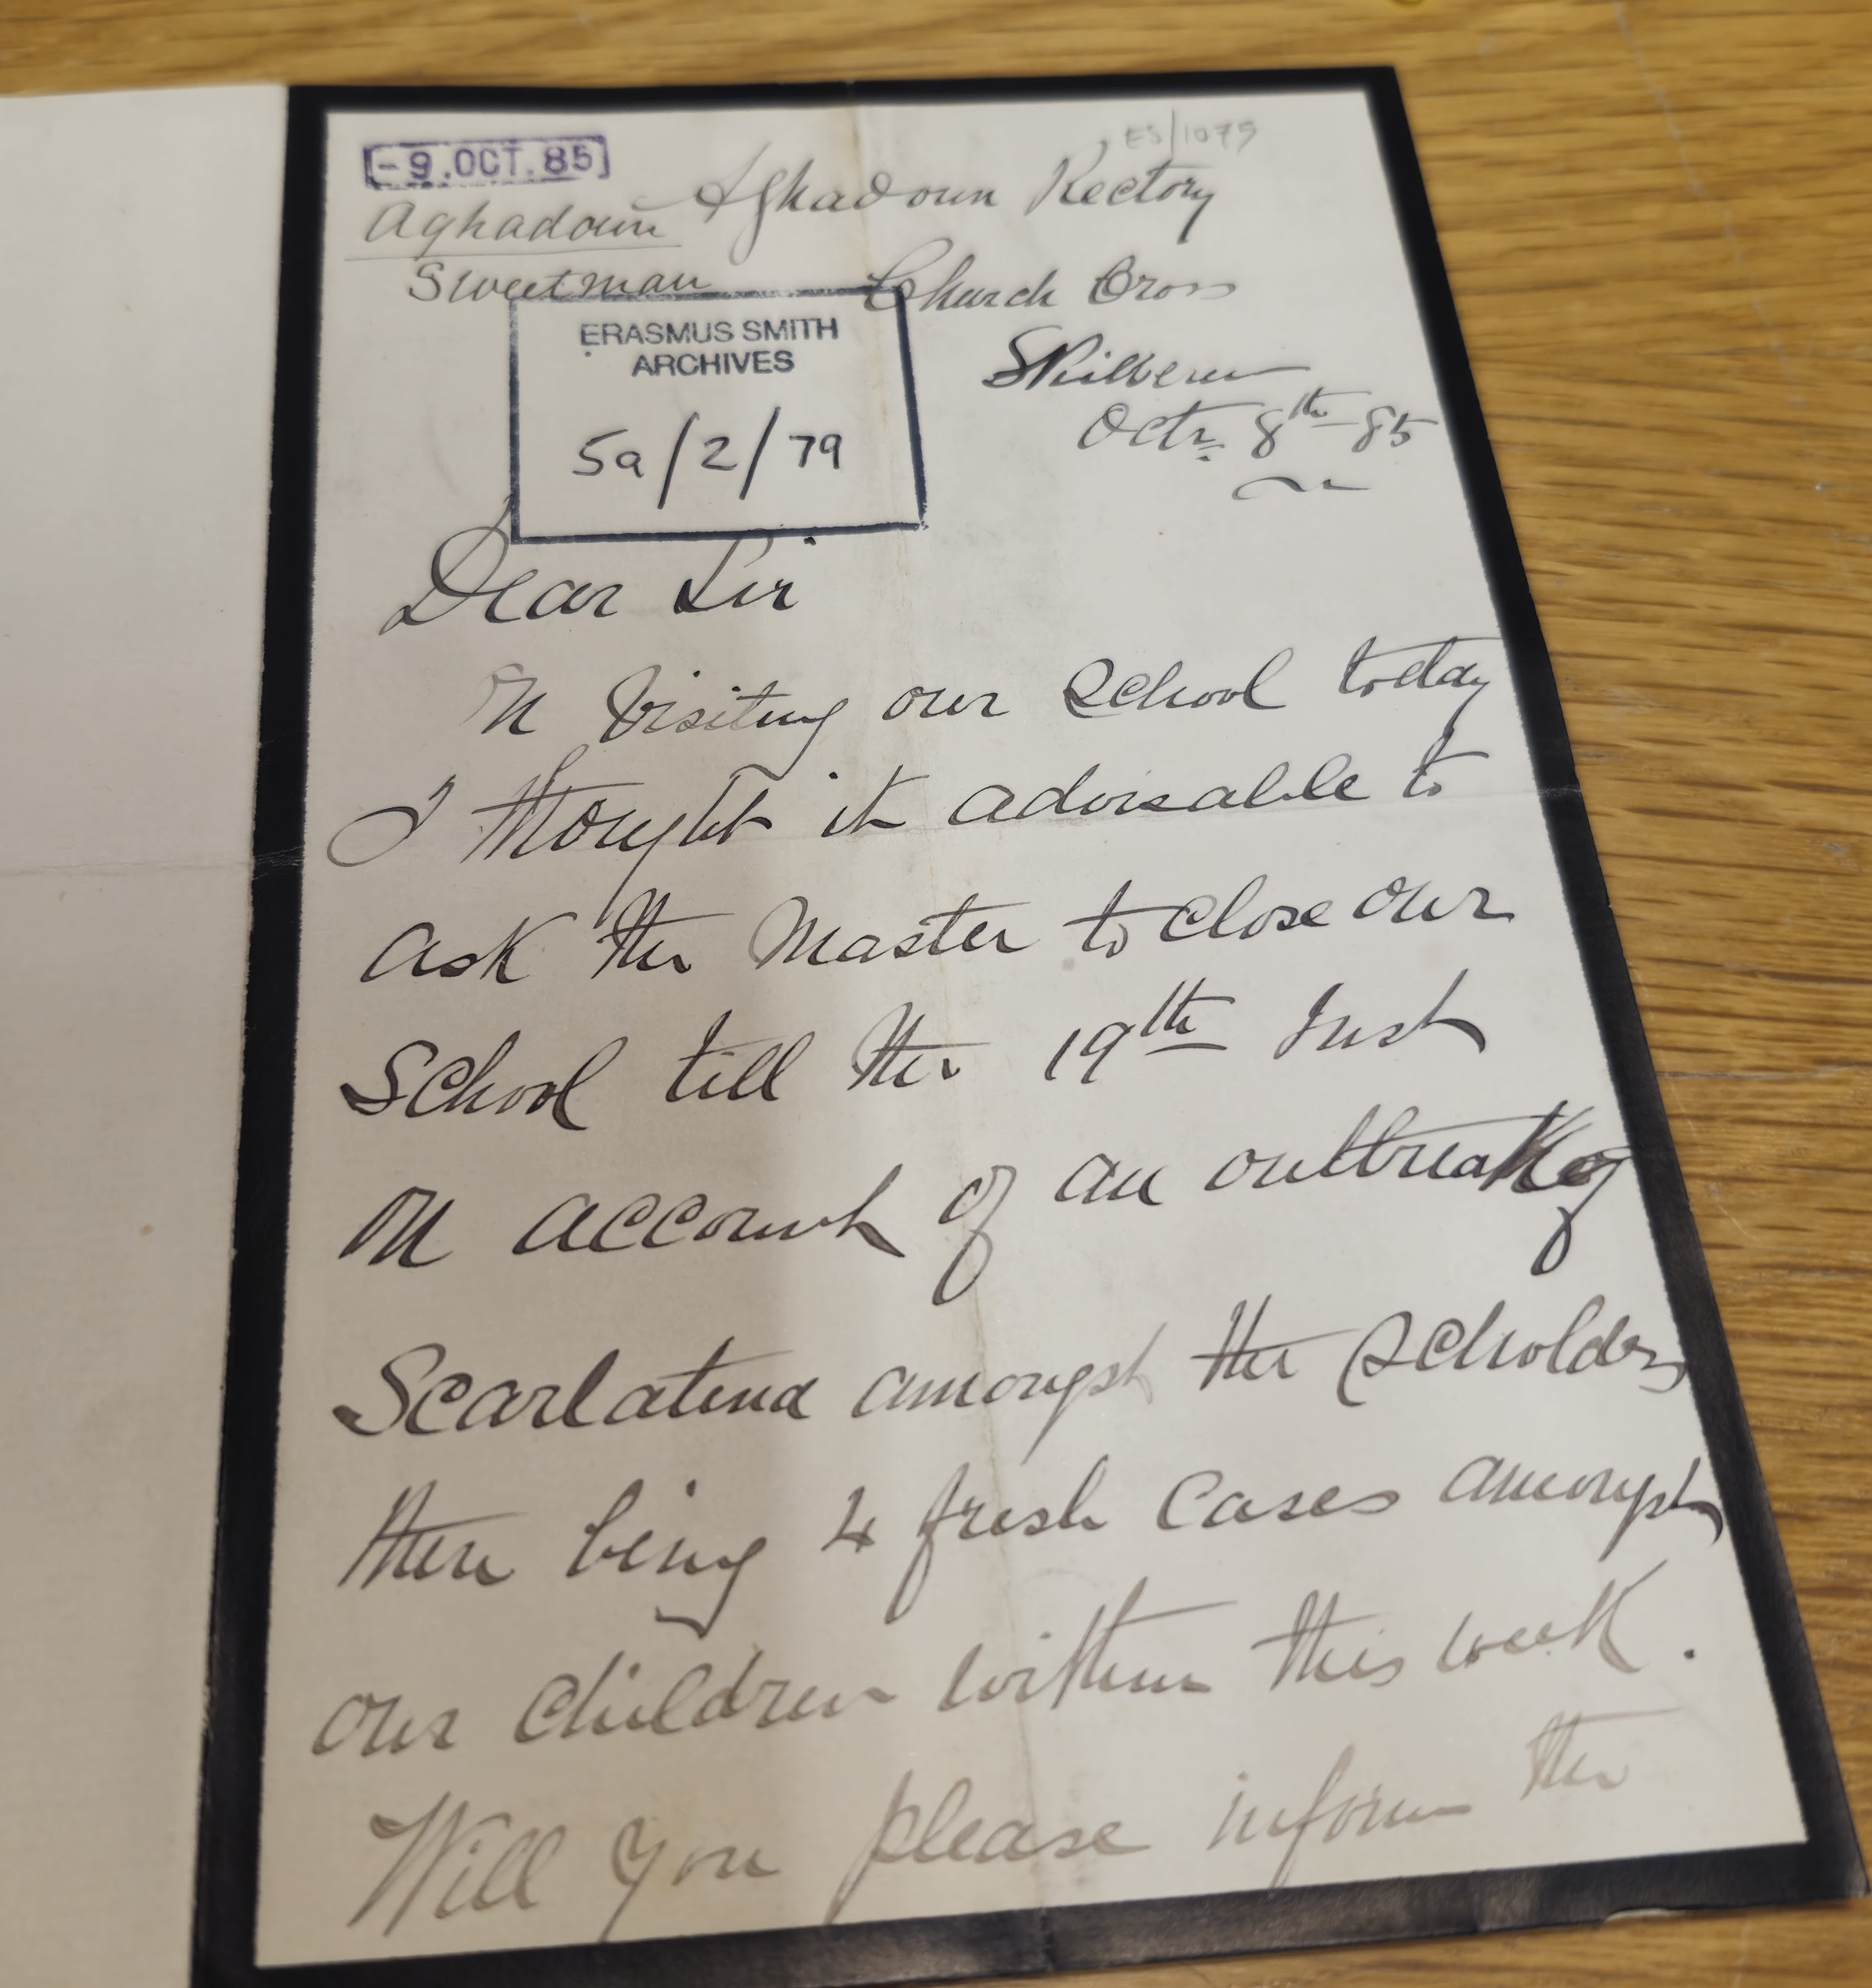 ES/1079
-9.OCT.85
Aghadoun Rectory
Aghadoun
Sweetman
Church Cross
Skibbereen
Octr. 8th 85
ERASMUS SMITH
ARCHIVES
5a/2/79
Dear Sir
On visiting our School today
I thought it advisable to
ask the Master to close our
School till the 19th Inst
on account of an outbreak of
Scarlatina amongst the Scholars
there being 4 fresh Cases amongst
our Children within this week.
Will you please inform the